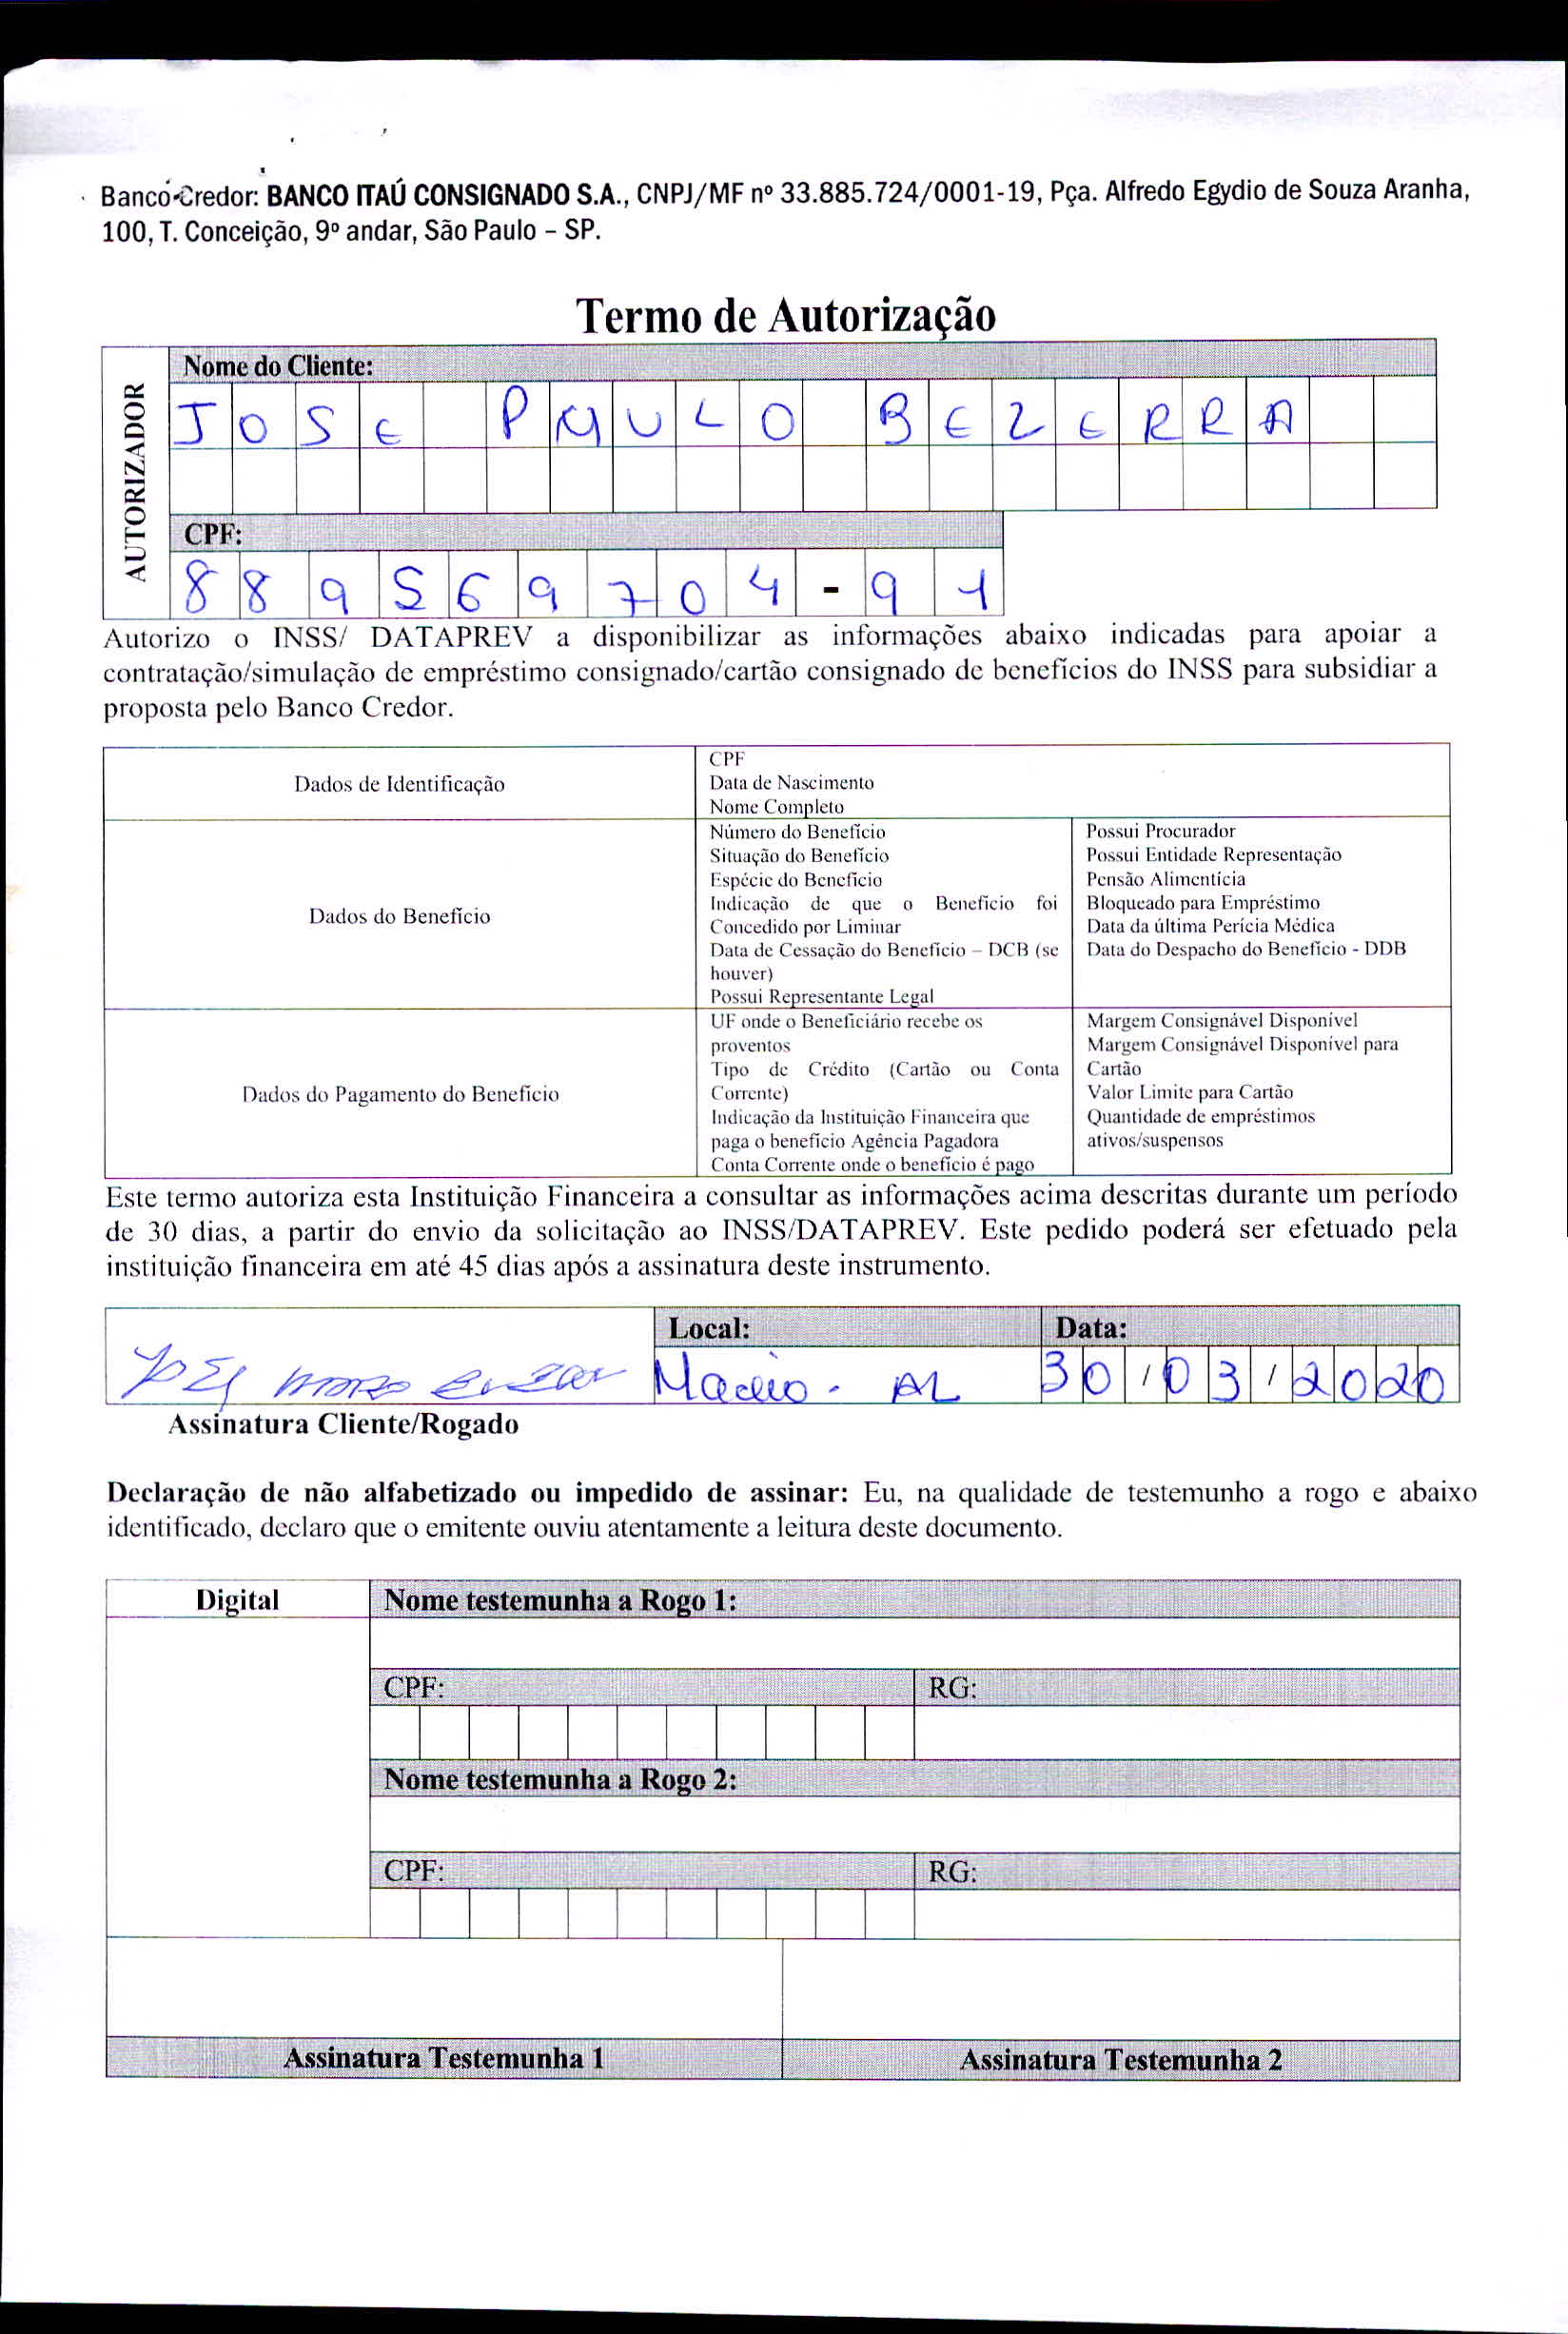 Banco Credor: BANCO ITAÚ CONSIGNADO S.A., CNPJ/MF nº 33.885.724/0001-19, Pça. Alfredo Egydio de Souza Aranha,
100, T. Conceição, 9º andar, São Paulo – SP.
Termo de Autorização
AUTORIZADOR
Nome do Cliente:
JOSE PAULO BEZERRA
CPF:
889569704-91
Autorizo o INSS/ DATAPREV a disponibilizar as informações abaixo indicadas para apoiar a
contratação/simulação de empréstimo consignado/cartão consignado de benefícios do INSS para subsidiar a
proposta pelo Banco Credor.
Dados de Identificação
CPF
Data de Nascimento
Nome Completo
Dados do Benefício
Número do Benefício
Situação do Benefício
Espécie do Benefício
Indicação de que o Benefício foi
Concedido por Liminar
Data de Cessação do Benefício – DCB (se
houver)
Possui Representante Legal
Possui Procurador
Possui Entidade Representação
Pensão Alimentícia
Bloqueado para Empréstimo
Data da última Perícia Médica
Data do Despacho do Benefício - DDB
Dados do Pagamento do Benefício
UF onde o Beneficiário recebe os
proventos
Tipo de Crédito (Cartão ou Conta
Corrente)
Indicação da Instituição Financeira que
paga o benefício Agência Pagadora
Conta Corrente onde o benefício é pago
Margem Consignável Disponível
Margem Consignável Disponível para
Cartão
Valor Limite para Cartão
Quantidade de empréstimos
ativos/suspensos
Este termo autoriza esta Instituição Financeira a consultar as informações acima descritas durante um período
de 30 dias, a partir do envio da solicitação ao INSS/DATAPREV. Este pedido poderá ser efetuado pela
instituição financeira em até 45 dias após a assinatura deste instrumento.
Local:
Data:
Maceio - AL
30/03/2020
Assinatura Cliente/Rogado
Declaração de não alfabetizado ou impedido de assinar: Eu, na qualidade de testemunho a rogo e abaixo
identificado, declaro que o emitente ouviu atentamente a leitura deste documento.
Digital
Nome testemunha a Rogo 1:
CPF:
RG:
Nome testemunha a Rogo 2:
CPF:
RG:
Assinatura Testemunha 1
Assinatura Testemunha 2